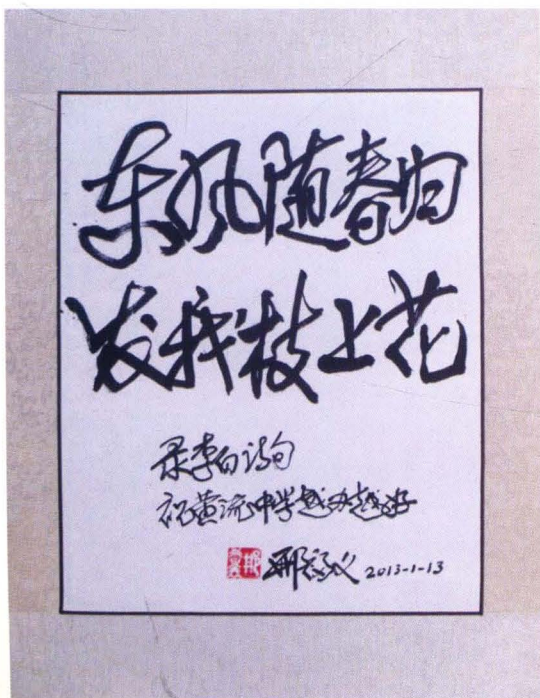 东风随春归
发我枝上花
录李白诗句
祝黄流中学越办越好
邢 2013-1-13